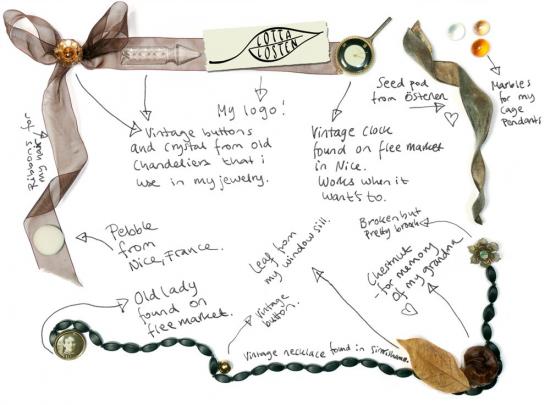 LOTTA
LOSTEN
My logo!
Vintage buttons
and crystal from old
chandeliers that i
use in my jewelry.
Ribbons for
my hair
Vintage clock
found on flee market
in Nice.
Works when it
want's to.
Seed pod
from Österlen
Marbles
for my
cage
pendants
Pebble
from
Nice, France.
Old lady
found on
flee market.
Leaf from
my window sill.
Vintage
button.
Broken but
pretty brooch
Chestnut
- for memory
of my grandma
Vintage necklace found in